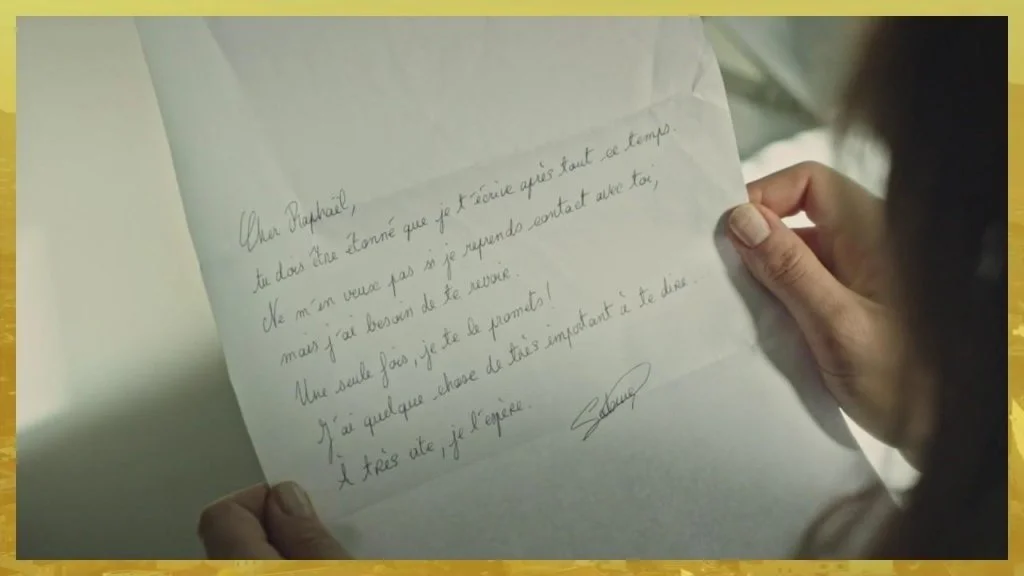 Cher Raphaël,
tu dois être étonné que je t'écrive après tout ce temps.
Ne m'en veux pas si je reprends contact avec toi,
mais j'ai besoin de te revoir.
Une seule fois, je te le promets !
J'ai quelque chose de très important à te dire.
À très vite, je l'espère.